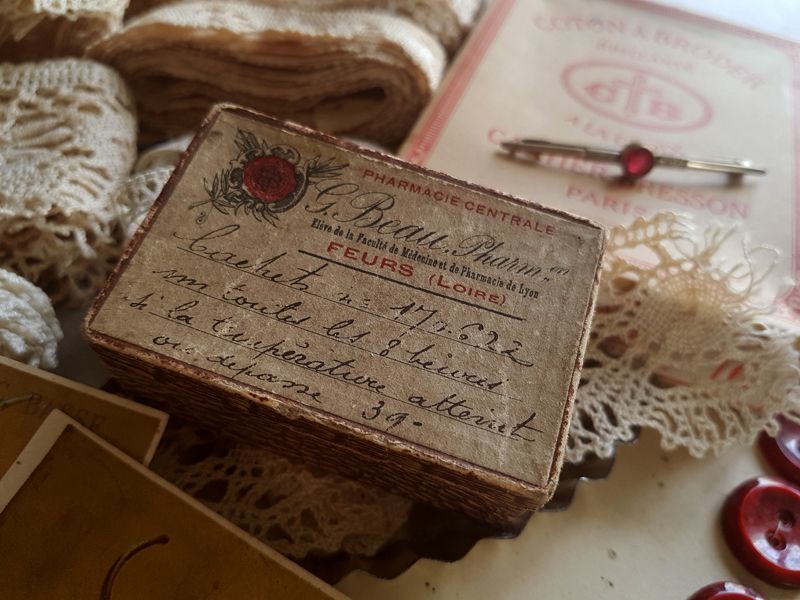 PHARMACIE CENTRALE
G. Beau, Pharm.en
Elève de la Faculté de Médecine et de Pharmacie de Lyon
FEURS (LOIRE)
Cachets n= 177.622
un toutes les 8 heures
si la température atteint
ou dépasse 39.
COTON A BRODER
CB
A LA
PARIS